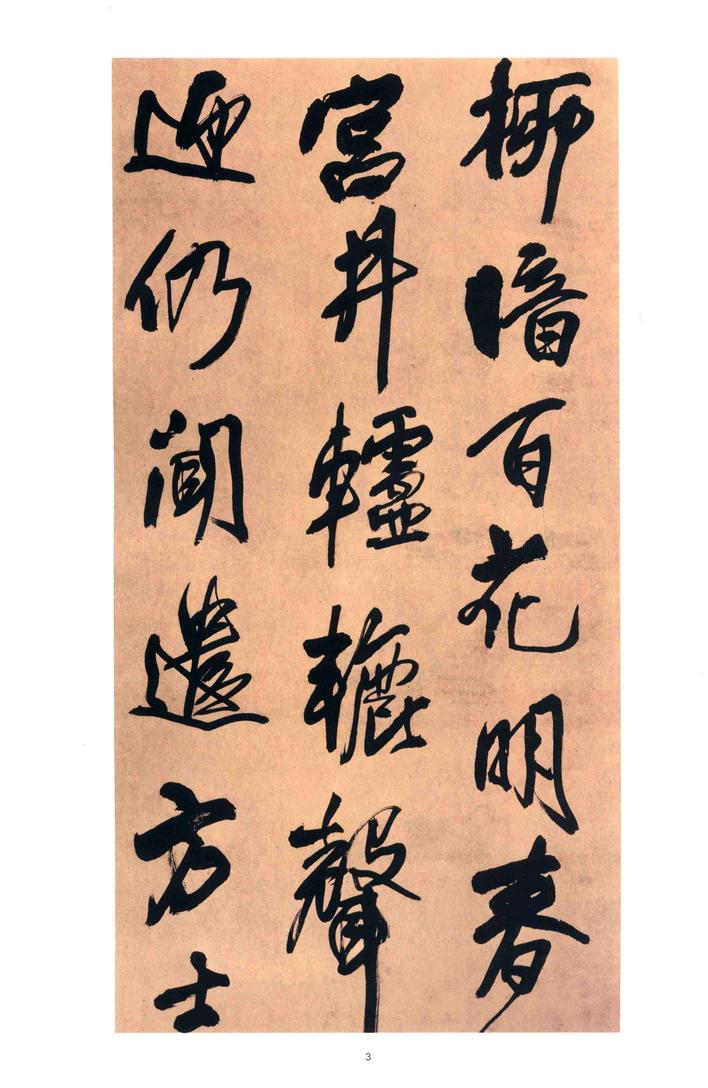 柳暗百花明春
宮井轤轆聲
迎仍聞遣方士
3